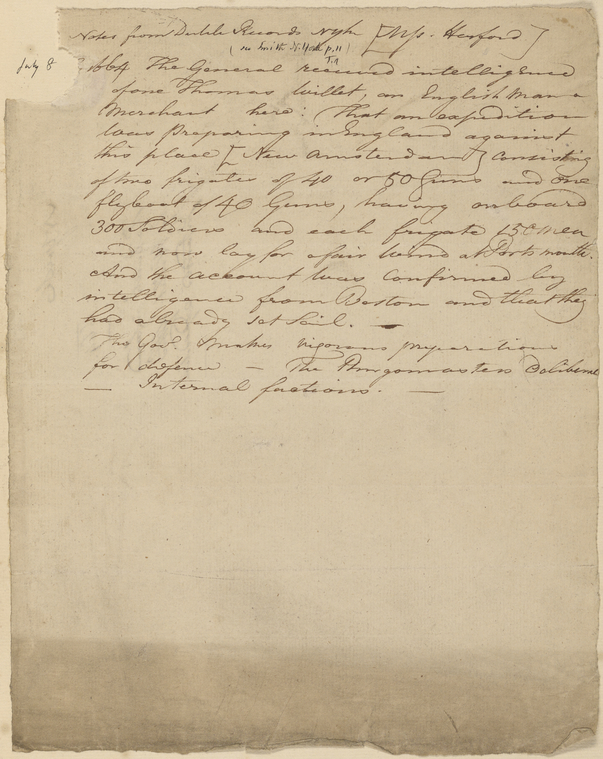 Notes from Dutch Records N York [Mss. Hazard]
(see Smith N. York p. 11)
July 8 1664 The General received intelligence
of one Thomas Willet, an English Man a
Merchant here: That an expedition
was preparing in England against
this place [New Amsterdam] consisting
of two frigates of 40 or 50 Guns and one
flyboat of 40 Guns, having on board
300 Soldiers and each frigate 150 Men
and now lay for a fair Wind at Portsmouth.
And the account was confirmed by
intelligence from Boston and that they
had already set Sail. —
The Govr. makes vigorous preparations
for defence — The Burgomasters Deliberate
— Internal factions. —